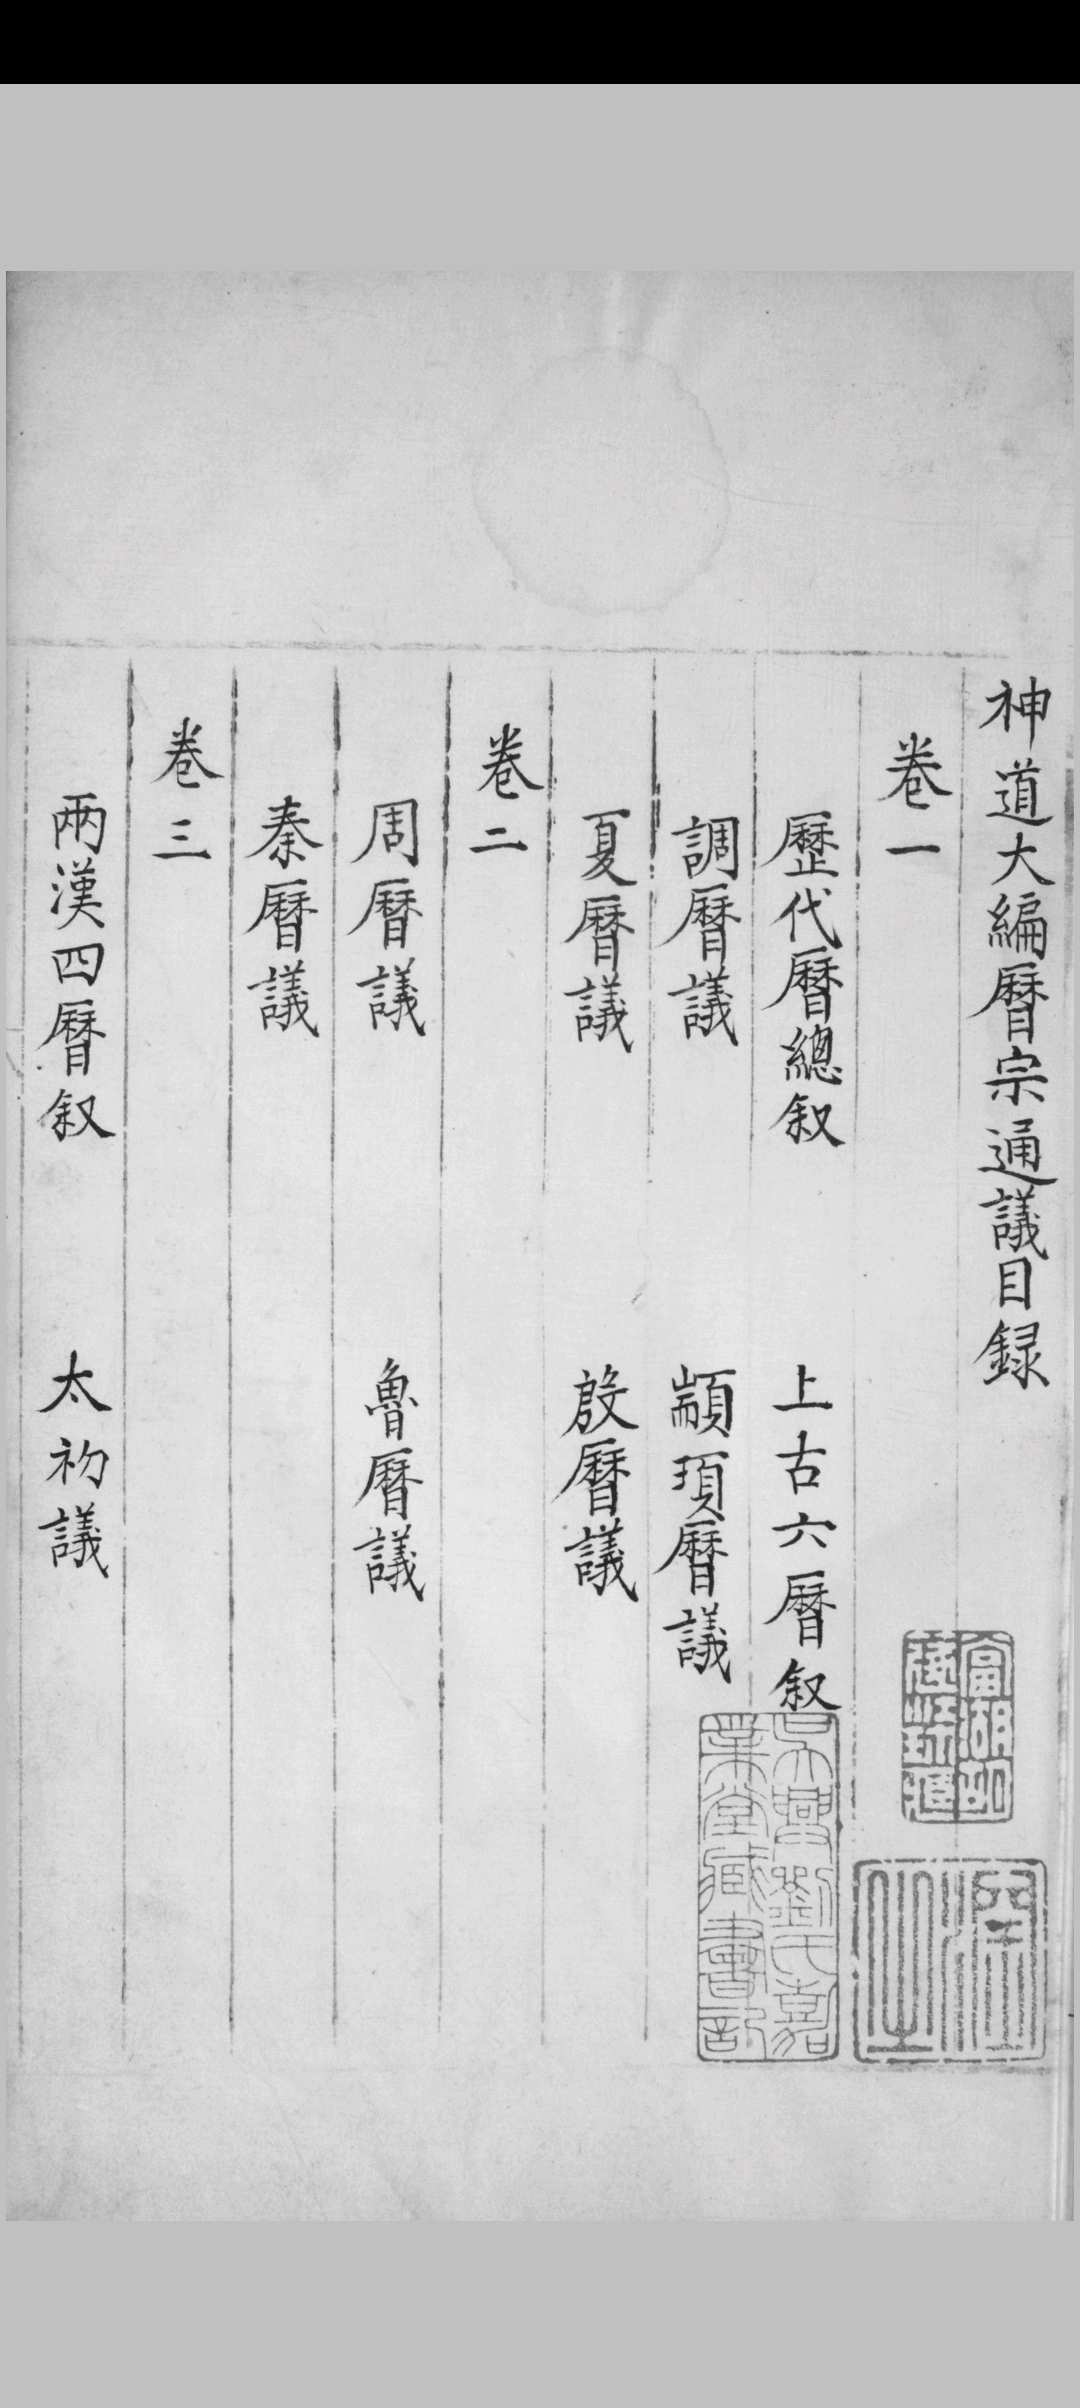 神道大編曆宗通議目録
卷一
歷代曆總叙　上古六曆叙
調曆議　顓頊曆議
夏曆議　殷曆議
卷二
周曆議　魯曆議
秦曆議
卷三
兩漢四曆叙　太初議
吳興劉氏嘉
業堂藏書記